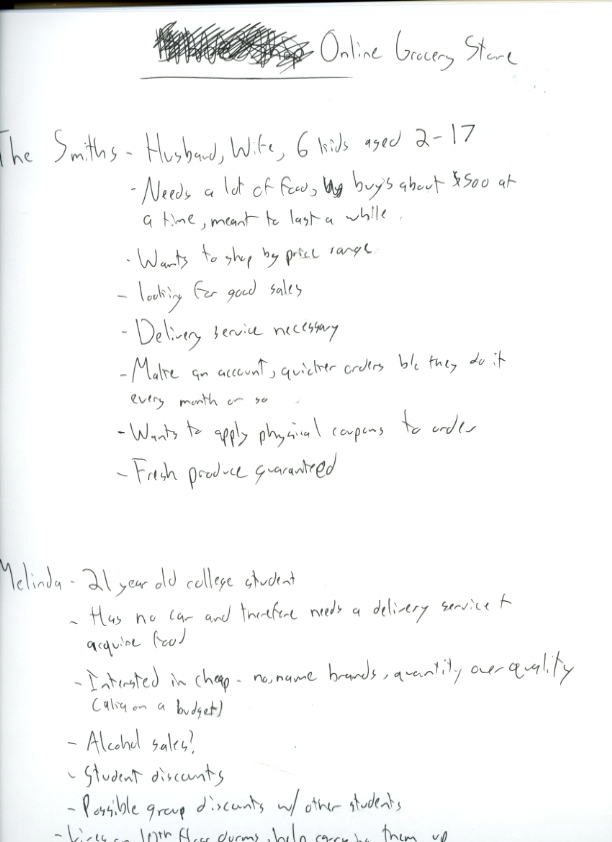 Online Grocery Store
The Smiths - Husband, Wife, 6 kids aged 2-17
- Needs a lot of food, buy's about $500 at
a time, meant to last a while.
- Wants to shop by price range
- looking for good sales
- Delivery service necessary
- Make an account, quicker orders b/c they do it
every month or so
- Wants to apply physical coupons to order
- Fresh produce guaranteed
Melinda - 21 year old college student
- Has no car and therefore needs a delivery service t
acquire food
- Interested in cheap - no,name brands, quantity over quality
(Alia on a budget)
- Alcohol sales?
- Student discounts
- Possible group discounts w/ other students
- Lives on 10th floor dorms, help carry them up